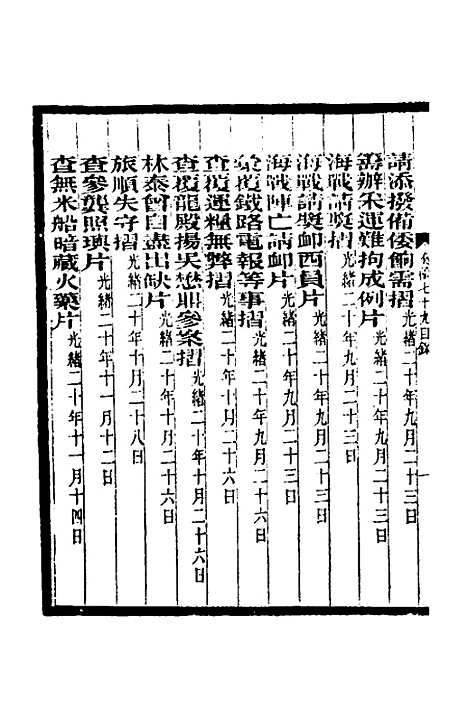 奏稿七十九目錄 一
請添撥備倭餉需摺 光緒二十年九月二十三日
籌辦采運難拘成例片 光緒二十年九月二十三日
海戰請獎摺 光緒二十年九月二十三日
海戰請獎卹西員片 光緒二十年九月二十三日
海戰陣亡請卹片 光緒二十年九月二十三日
彙覆鐵路電報等事摺 光緒二十年九月二十六日
查覆運糧無弊摺 光緒二十年十月二十六日
查覆龍殿揚吳懋鼎參案摺 光緒二十年十月二十六日
林泰曾自盡出缺片 光緒二十年十月二十六日
旅順失守摺 光緒二十年十月二十八日
查參龔照璵片 光緒二十年十一月十二日
查無米船暗藏火藥片 光緒二十年十一月十四日